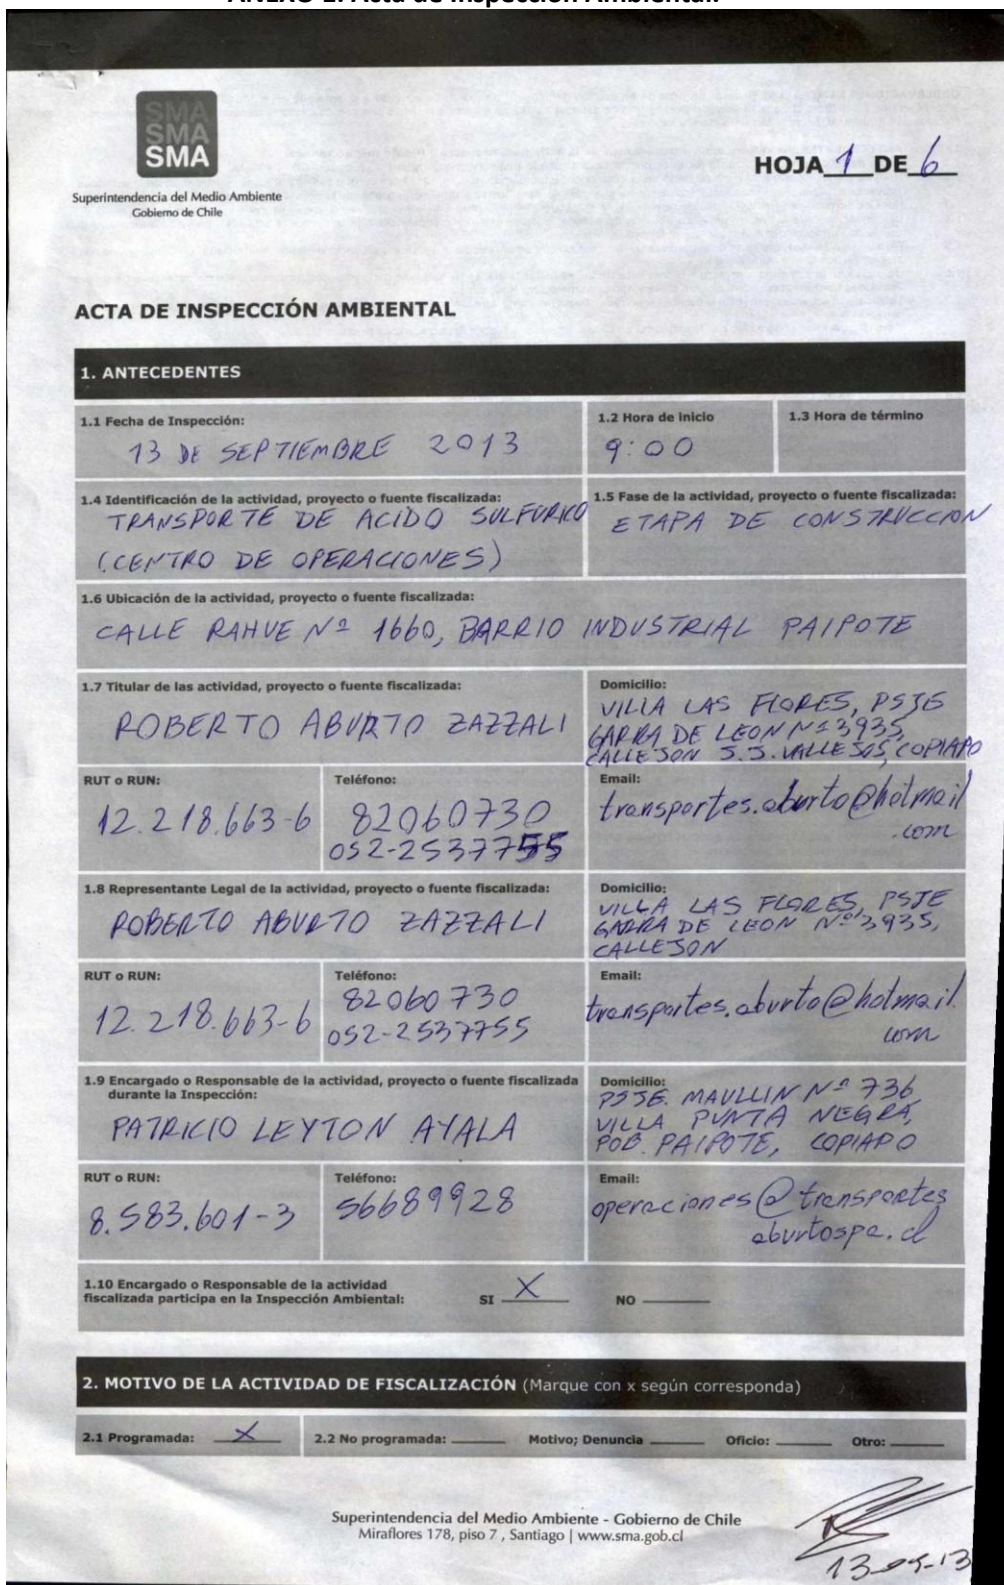 ANEXO 1. Acta de Inspección Ambiental.
SMA
SMA
SMA
Superintendencia del Medio Ambiente
Gobierno de Chile
HOJA 1 DE 6
ACTA DE INSPECCIÓN AMBIENTAL
1. ANTECEDENTES
1.1 Fecha de Inspección:
13 DE SEPTIEMBRE 2013
1.2 Hora de inicio
9:00
1.3 Hora de término
1.4 Identificación de la actividad, proyecto o fuente fiscalizada:
TRANSPORTE DE ACIDO SULFURICO
(CENTRO DE OPERACIONES)
1.5 Fase de la actividad, proyecto o fuente fiscalizada:
ETAPA DE CONSTRUCCION
1.6 Ubicación de la actividad, proyecto o fuente fiscalizada:
CALLE RAHUE Nº 1660, BARRIO INDUSTRIAL PAIPOTE
1.7 Titular de las actividad, proyecto o fuente fiscalizada:
ROBERTO ABURTO ZAZZALI
Domicilio:
VILLA LAS FLORES, PSJE
GARRA DE LEON Nº 3935,
CALLEJON J.J. VALLEJOS, COPIAPO
RUT o RUN:
12.218.663-6
Teléfono:
82060730
052-2537755
Email:
transportes.aburto@hotmail
.com
1.8 Representante Legal de la actividad, proyecto o fuente fiscalizada:
ROBERTO ABURTO ZAZZALI
Domicilio:
VILLA LAS FLORES, PSJE
GARRA DE LEON Nº 3935,
CALLEJON
RUT o RUN:
12.218.663-6
Teléfono:
82060730
052-2537755
Email:
transportes.aburto@hotmail.
com
1.9 Encargado o Responsable de la actividad, proyecto o fuente fiscalizada
durante la Inspección:
PATRICIO LEYTON AYALA
Domicilio:
PSJE. MAULLIN Nº 736
VILLA PUNTA NEGRA,
POB. PAIPOTE, COPIAPO
RUT o RUN:
8.583.601-3
Teléfono:
56689928
Email:
operaciones@transportes
aburtospa.cl
1.10 Encargado o Responsable de la actividad
fiscalizada participa en la Inspección Ambiental: SI X NO
2. MOTIVO DE LA ACTIVIDAD DE FISCALIZACIÓN (Marque con x según corresponda)
2.1 Programada: X 2.2 No programada: Motivo; Denuncia Oficio: Otro:
Superintendencia del Medio Ambiente - Gobierno de Chile
Miraflores 178, piso 7, Santiago | www.sma.gob.cl
13-09-13